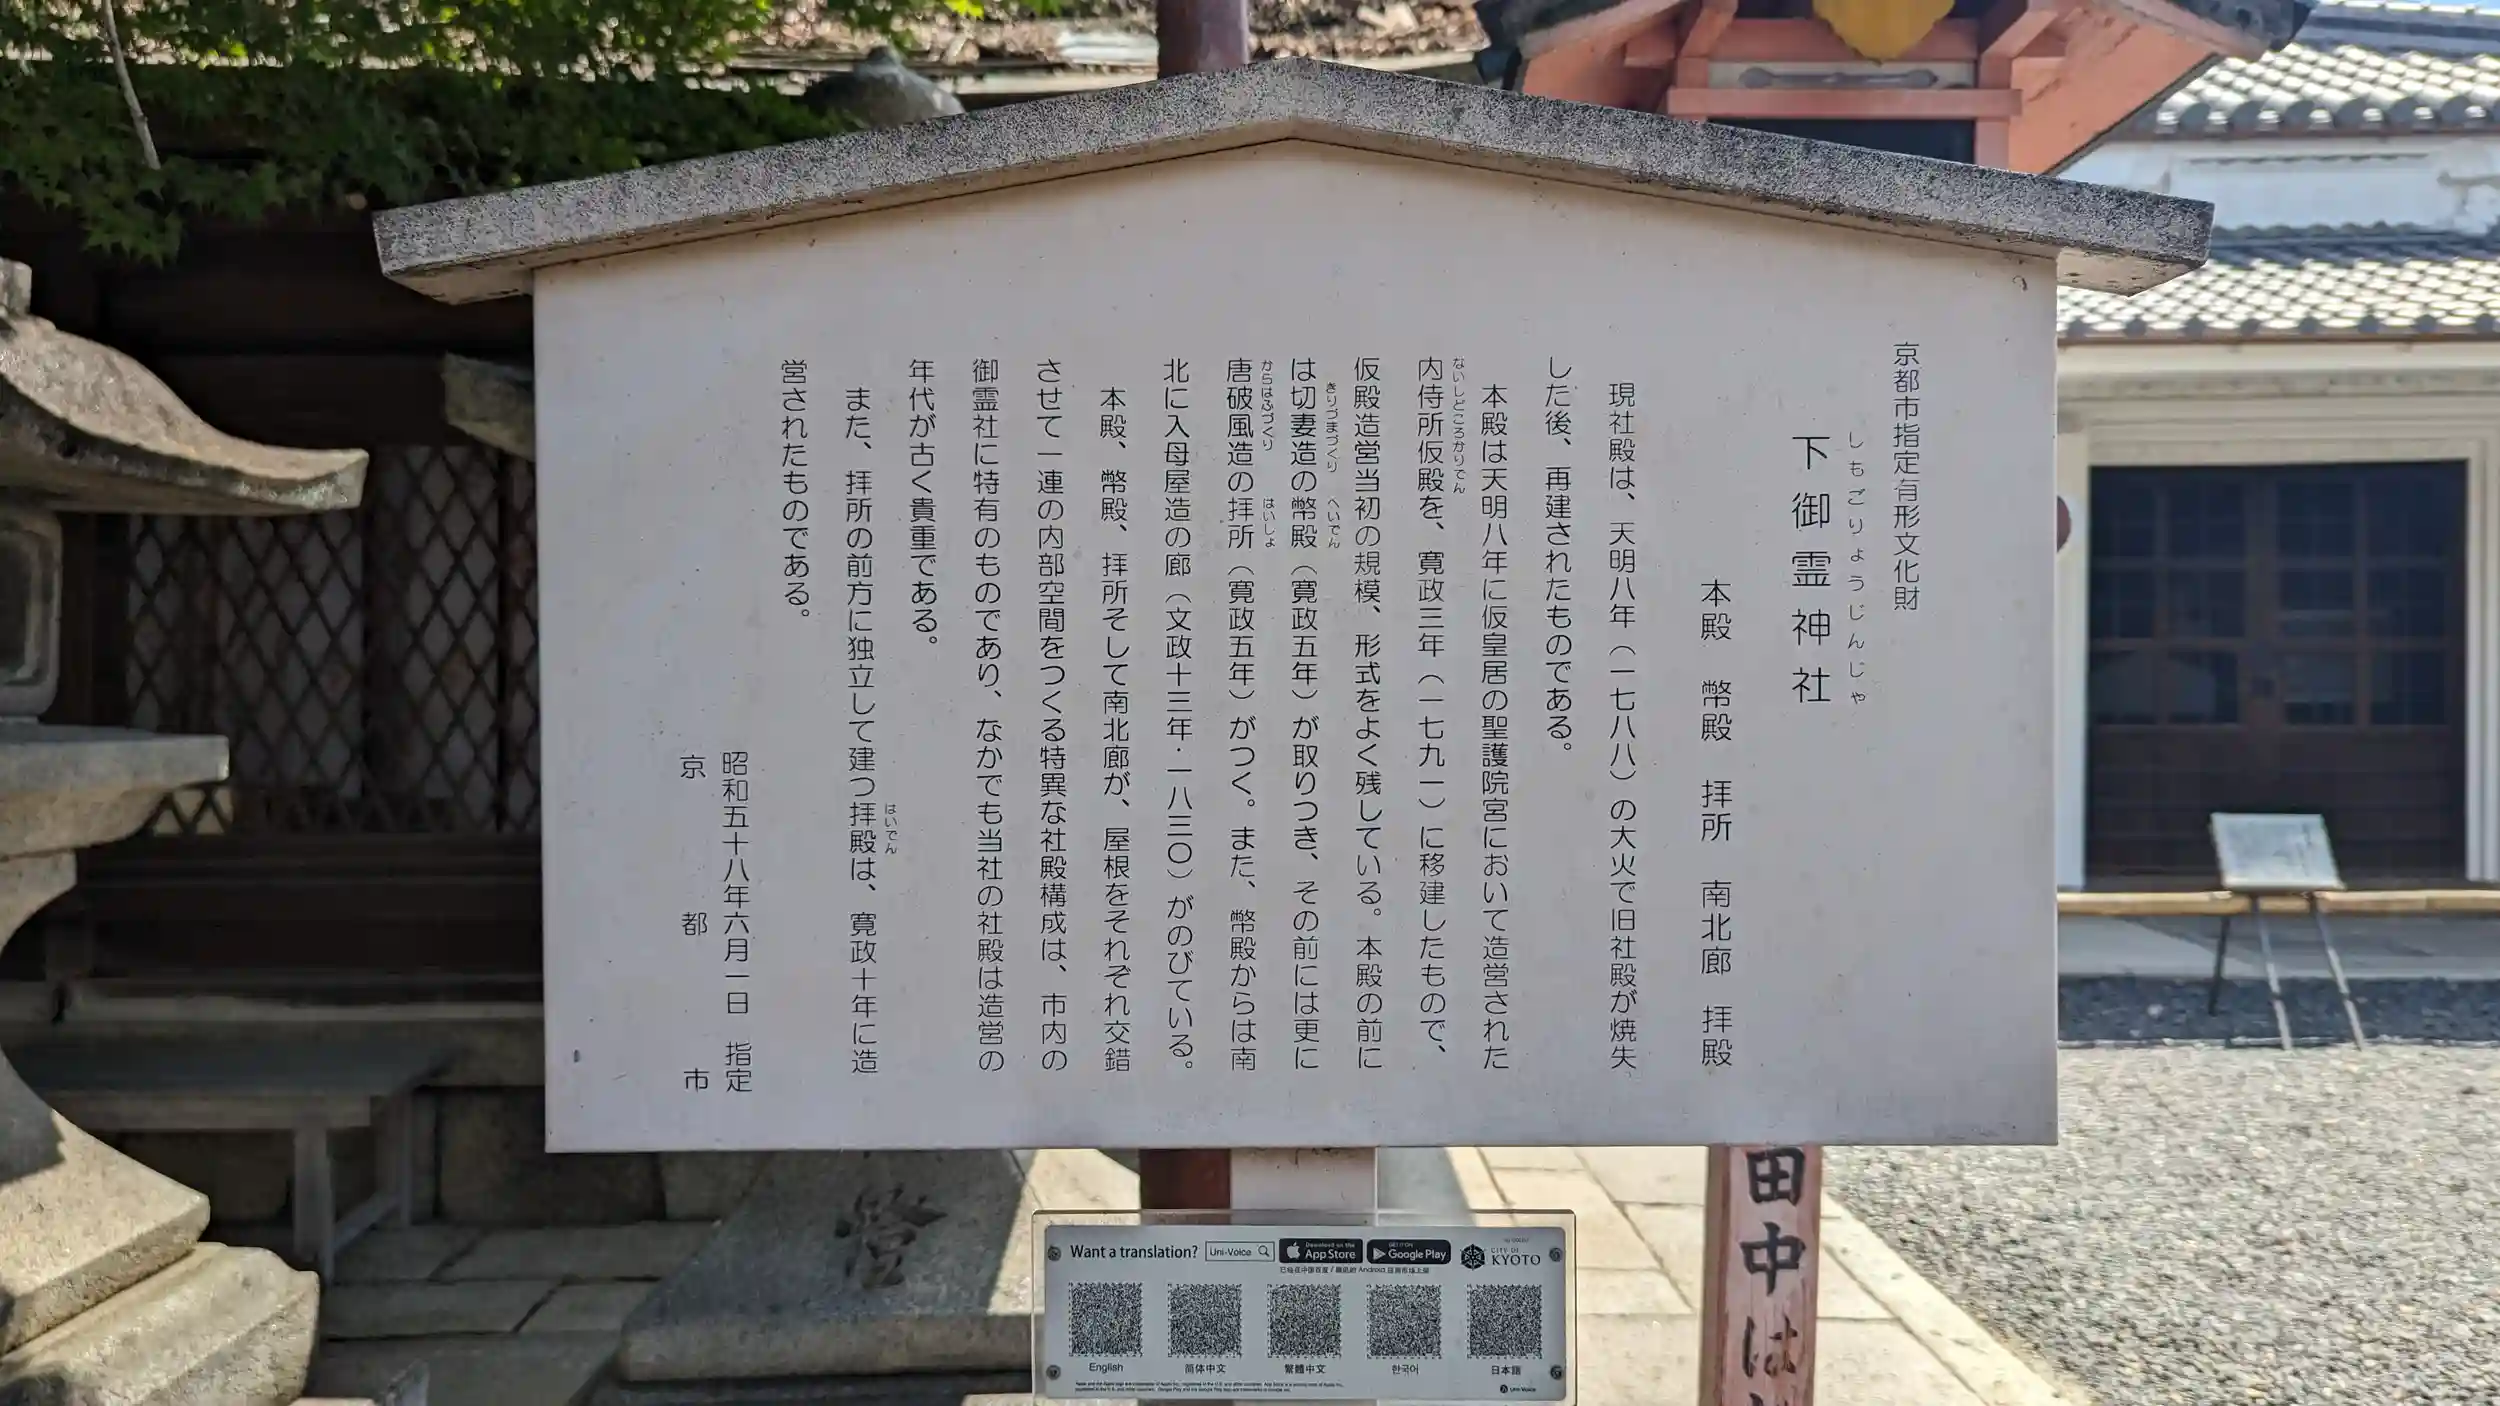 京都市指定有形文化財
しもごりょうじんじゃ
下御霊神社
本殿 幣殿 拝所 南北廊 拝殿
現社殿は、天明八年（一七八八）の大火で旧社殿が焼失
した後、再建されたものである。
本殿は天明八年に仮皇居の聖護院宮において造営された
ないしどころかりでん
内侍所仮殿を、寛政三年（一七九一）に移建したもので、
仮殿造営当初の規模、形式をよく残している。本殿の前に
きりづまづくり へいでん
は切妻造の幣殿（寛政五年）が取りつき、その前には更に
からはふづくり はいしょ
唐破風造の拝所（寛政五年）がつく。また、幣殿からは南
北に入母屋造の廊（文政十三年・一八三〇）がのびている。
本殿、幣殿、拝所そして南北廊が、屋根をそれぞれ交錯
させて一連の内部空間をつくる特異な社殿構成は、市内の
御霊社に特有のものであり、なかでも当社の社殿は造営の
年代が古く貴重である。
はいでん
また、拝所の前方に独立して建つ拝殿は、寛政十年に造
営されたものである。
昭和五十八年六月一日 指定
京都市
田中は
燈
Want a translation?
Uni-Voice
Download on the
App Store
GET IT ON
Google Play
CITY OF
KYOTO
English
简体中文
繁體中文
한국어
日本語
Uni-Voice